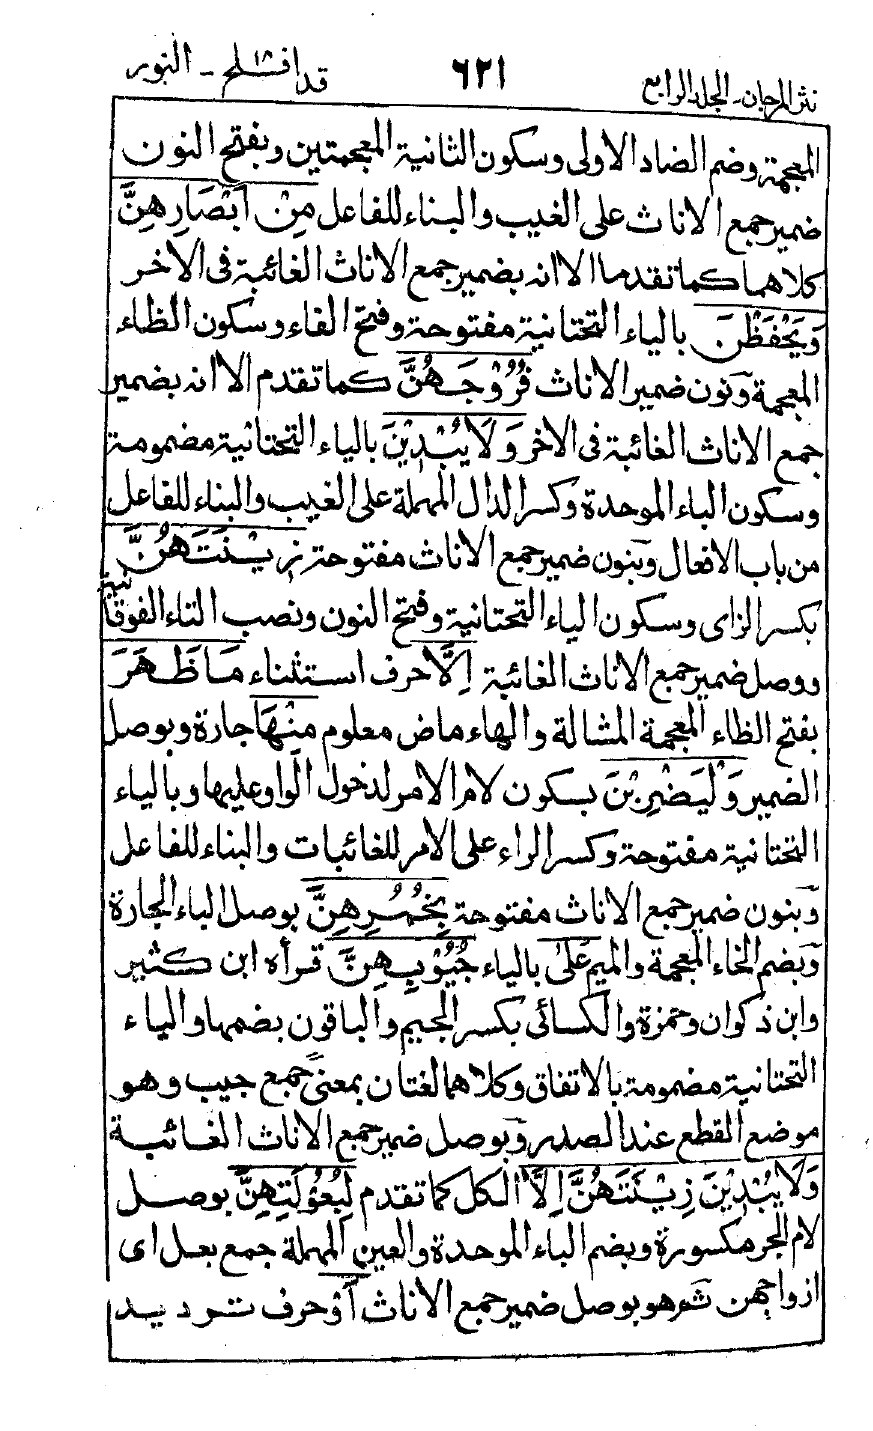 نثر المرجان ـ المجلد الرابع ٦٢١ قد افلح ١٨ ـ النور
المعجمة وضم الضاد الاولى وسكون الثانية المعجمتين وبفتح النون
ضمير جمع الاناث على الغيب والبناء للفاعل مِنْ اَبْصَارِهِنَّ
كلاهما كما تقدما الا انه بضمير جمع الاناث الغائبة فى الاخر
وَيَحْفَظْنَ بالياء التحتانية مفتوحة وفتح الفاء وسكون الظاء
المعجمة ونون ضمير الاناث فُرُوْجَهُنَّ كما تقدم الا انه بضمير
جمع الاناث الغائبة فى الاخر وَلَا يُبْدِيْنَ بالياء التحتانية مضمومة
وسكون الباء الموحدة وكسر الدال المهملة على الغيب والبناء للفاعل
من باب الافعال وبنون ضمير جمع الاناث مفتوحة زِيْنَتَهُنَّ
بكسر الزاى وسكون الياء التحتانية وفتح النون ونصب التاء الفوقانية
ووصل ضمير جمع الاناث الغائبة اِلَّا حرف استثناء مَا ظَهَرَ
بفتح الظاء المعجمة المشالة والهاء ماض معلوم مِنْهَا جارة وبوصل
الضمير وَلْيَضْرِبْنَ بسكون لام الامر لدخول الواو عليها وبالياء
التحتانية مفتوحة وكسر الراء على الامر للغائبات والبناء للفاعل
وبنون ضمير جمع الاناث مفتوحة بِخُمُرِهِنَّ بوصل الباء الجارة
وبضم الخاء المعجمة والميم عَلٰى بالياء جُيُوْبِهِنَّ قرأه ابن كثير
وابن ذكوان وحمزة والكسائى بكسر الجيم والباقون بضمها والياء
التحتانية مضمومة بالاتفاق وكلاهما لغتان بمعنى جمع جيب وهو
موضع القطع عند الصدر وبوصل ضمير جمع الاناث الغائبة
وَلَا يُبْدِيْنَ زِيْنَتَهُنَّ اِلَّا الكل كما تقدم لِبُعُوْلَتِهِنَّ بوصل
لام الجر مكسورة وبضم الباء الموحدة والعين المهملة جمع بعل اى
ازواجهن ثم هو بوصل ضمير جمع الاناث اَوْ حرف ترديد